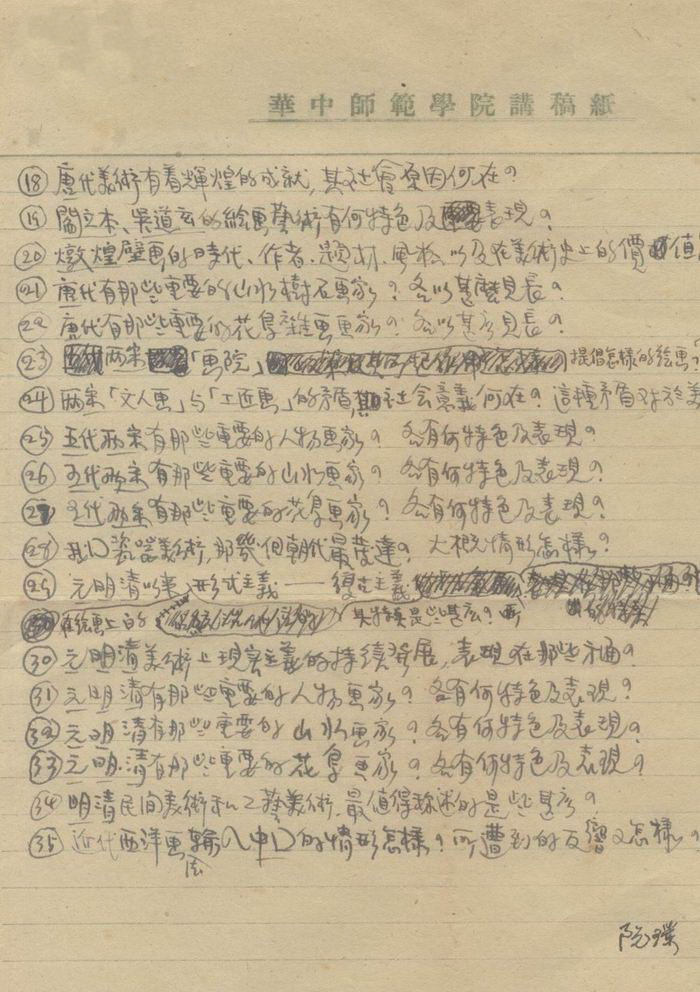 華中師範學院講稿紙
(18) 唐代美術有着輝煌的成就,其社會原因何在?
(19) 閻立本、吳道玄的絵画藝術有何特色及表現?
(20) 燉煌壁画的時代、作者、題材、風格,以及在美術史上的價值
(21) 唐代有那些重要的山水樹石画家?各以甚麽見長?
(22) 唐代有那些重要的花鳥雜画画家?各以甚么見長?
(23) 两宋「画院」提倡怎樣的绘画?
(24) 两宋「文人画」与「工匠画」的矛盾,其社会意義何在?這種矛盾对於美
(25) 五代两宋有那些重要的人物画家?各有何特色及表現?
(26) 五代两宋有那些重要的山水画家?各有何特色及表現?
(27) 五代两宋有那些重要的花鳥画家?各有何特色及表現?
(28) 我囗瓷器美術,那幾個朝代最發達?大概情形怎樣?
(29) 元明清以来,形式主義——復古主義
在绘画上的 其特徵是些甚么?
(30) 元明清美術上現実主義的持續發展,表現在那些方面?
(31) 元明清有那些重要的人物画家?各有何特色及表現?
(32) 元明清有那些重要的山水画家?各有何特色及表現?
(33) 元明清有那些重要的花鳥画家?各有何特色及表現?
(34) 明清民间美術和工藝美術,最值得称述的是些甚么?
(35) 近代西洋画輸入中囗的情形怎樣?所遭到的反響又怎樣?
阮璞